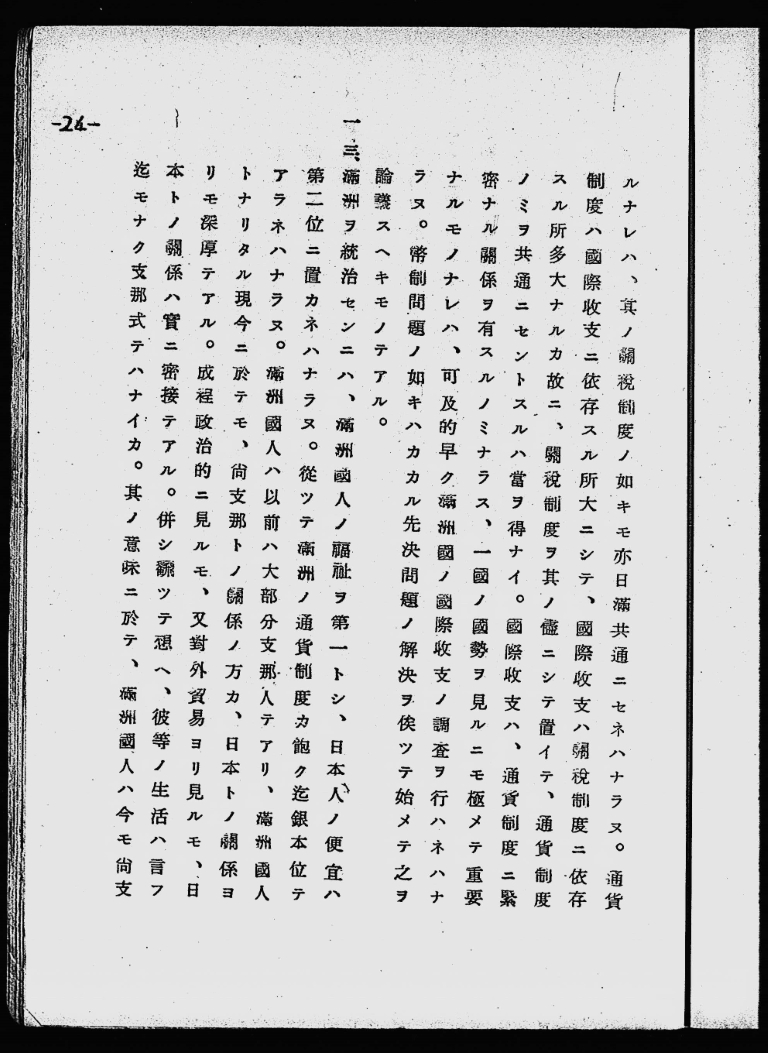 ルナレハ、其ノ關稅制度ノ如キモ亦日滿共通ニセネハナラヌ。通貨
制度ハ國際收支ニ依存スル所大ニシテ、國際收支ハ關稅制度ニ依存
スル所多大ナルカ故ニ、關稅制度ヲ其ノ儘ニシテ置イテ、通貨制度
ノミヲ共通ニセントスルハ當ヲ得ナイ。國際收支ハ、通貨制度ニ緊
密ナル關係ヲ有スルノミナラス、一國ノ國勢ヲ見ルニモ極メテ重要
ナルモノナレハ、可及的早ク滿洲國ノ國際收支ノ調査ヲ行ハネハナ
ラヌ。幣制問題ノ如キハカカル先決問題ノ解決ヲ俟ツテ始メテ之ヲ
論議スヘキモノテアル。
一三、滿洲ヲ統治センニハ、滿洲國人ノ福祉ヲ第一トシ、日本人ノ便宜ハ
第二位ニ置カネハナラヌ。從ツテ滿洲ノ通貨制度カ飽ク迄銀本位テ
アラネハナラヌ。滿洲國人ハ以前ハ大部分支那人テアリ、滿洲國人
トナリタル現今ニ於テモ、尙支那トノ關係ノ方カ、日本トノ關係ヨ
リモ深厚テアル。成程政治的ニ見ルモ、又對外貿易ヨリ見ルモ、日
本トノ關係ハ實ニ密接テアル。併シ飜ツテ想ヘ、彼等ノ生活ハ言フ
迄モナク支那式テハナイカ。其ノ意味ニ於テ、滿洲國人ハ今モ尙支
-24-